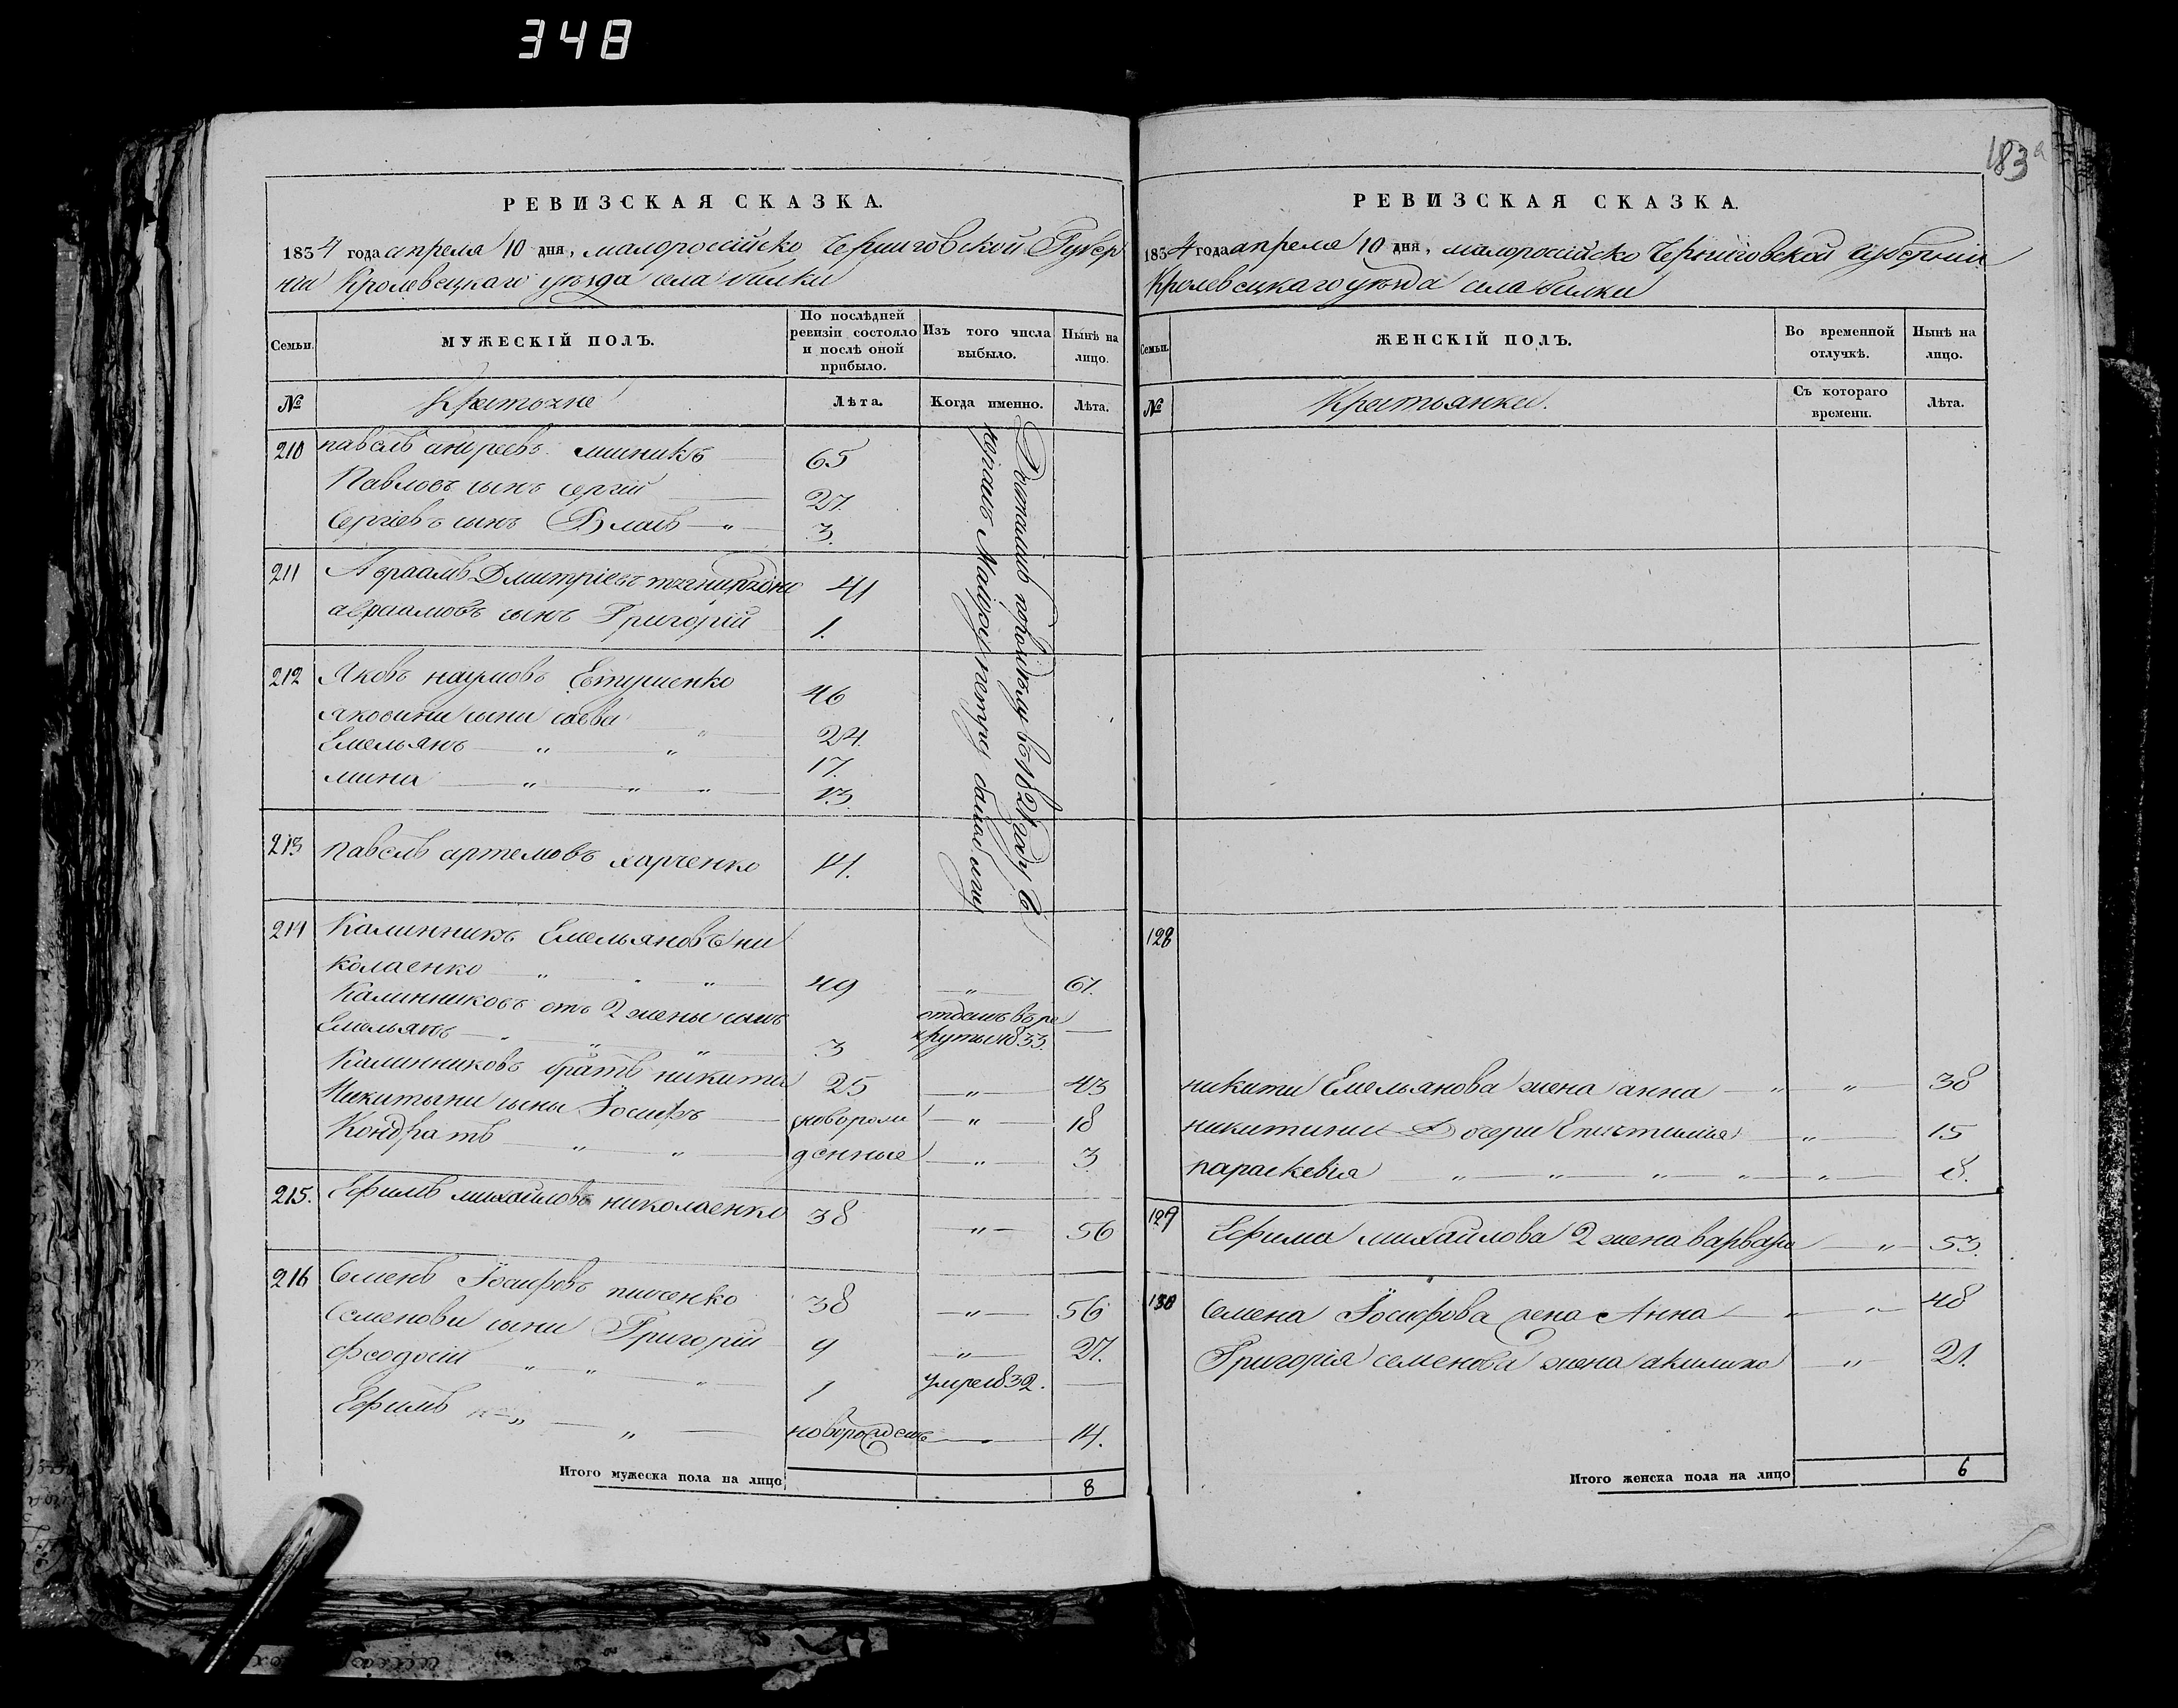 348
183а
РЕВИЗСКАЯ СКАЗКА.
1834 года апреля 10 дня, малороссійско Черниговской Губер
ніи Кролевецкаго уѣзда села билки
Семьи. МУЖЕСКІЙ ПОЛЪ. По послѣдней ревизіи состояло и послѣ оной прибыло. Изъ того числа выбыло. Нынѣ на лицо.
№ Крестьяне Лѣта. Когда именно. Лѣта.
210 павелъ андреевъ 65
Павловъ сынъ сергій 27.
Сергіевъ сынъ Власъ — „ — 3.
211 Авраамъ Дмитріевъ 41
авраамовъ сынъ Григорій 1.
212 Яковъ наумовъ Евтушенко 46
яковини сини савва „ 24.
Емельянъ — „ „ 17.
мина — „ „ „ 13.
213 павелъ артемовъ харченко 14.
Достались по раздѣлу въ 1824 году
214 Калинникъ Емельяновъ ни
колаенко „ „ „ 49 — „ — 61.
Калинниковъ отъ 2 жены сынъ отданъ въ ре
Емельянъ — „ „ „ 3 круты 1833. —
Калинниковъ братъ никита 25 — „ — 43
Никитини сини Іосифъ новорож — „ — 18
Кондратъ — „ „ денные — „ — 3
215. Ефимъ михайловъ николаенко 38 — „ — 56
216 Семенъ Іосифовъ 38 — „ — 56
Семенови сини Григорій 9 — „ — 27.
феодосій „ „ „ 1 умре 1832. —
Ефимъ „ „ новорожденъ — „ — 14.
Итого мужеска пола на лицо 8
РЕВИЗСКАЯ СКАЗКА.
1834 года апреля 10 дня, малороссійско Черниговской губерніи
Кролевецкаго уѣзда села билки
Семьи. ЖЕНСКІЙ ПОЛЪ. Во временной отлучкѣ. Нынѣ на лицо.
№ Крестьянки. Съ котораго времени. Лѣта.
128
никити Емельянова жена анна — „ „ — 38
никитини Дочери Епистимия — „ — 15
параскевія „ — „ — „ — „ — „ — 8.
129 Ефима михайлова 2 жена варвара — „ — 53.
130 Семена Іосифова жена Анна — „ „ — 48
Григорія семенова жена акилина — „ — 21.
Итого женска пола на лицо 6